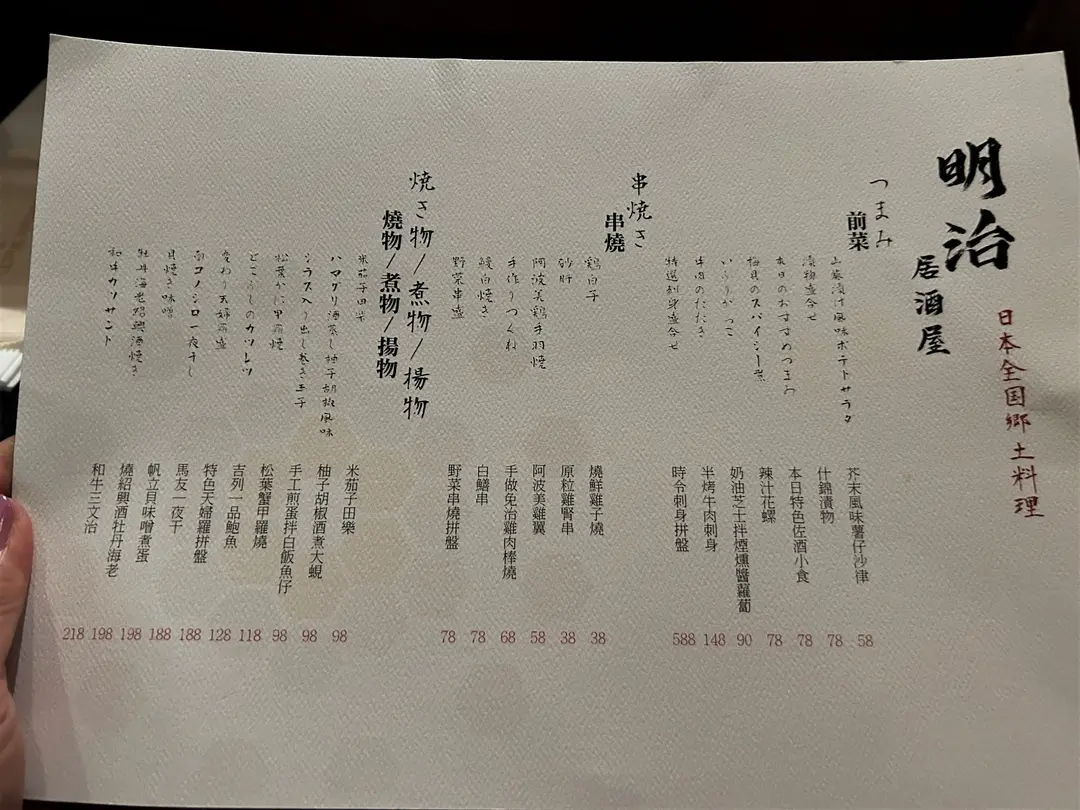 明治
居酒屋
日本全国郷土料理
つまみ
前菜
山葵漬け風味ポテトサラダ
漬物盛合せ
本日のおすすめつまみ
梅貝のスパイシー煮
いぶりがっこ
牛肉のたたき
特選刺身盛合せ
芥末風味薯仔沙律
什錦漬物
本日特色佐酒小食
辣汁花螺
奶油芝士拌煙燻醬蘿蔔
半烤牛肉刺身
時令刺身拼盤
58
78
78
78
90
148
588
串焼き
串燒
鶏白子
砂肝
阿波美鶏手羽焼
手作りつくね
鰻白焼き
野菜串盛
燒鮮雞子燒
原粒雞腎串
阿波美雞翼
手做免治雞肉棒燒
白鱔串
野菜串燒拼盤
38
38
58
68
78
78
焼き物/煮物/揚物
燒物/煮物/揚物
米茄子田楽
ハマグリ酒蒸し柚子胡椒風味
シラス入り出し巻き玉子
松葉かに甲羅焼
とこぶしのカツレツ
変わり天婦羅盛
コノシロ一夜干し
貝焼き味噌
牡丹海老紹興酒焼き
和牛カツサンド
米茄子田樂
柚子胡椒酒煮大蜆
手工煎蛋拌白飯魚仔
松葉蟹甲羅燒
吉列一品鮑魚
特色天婦羅拼盤
馬友一夜干
帆立貝味噌煮蛋
燒紹興酒牡丹海老
和牛三文治
98
98
98
118
128
188
188
198
198
218